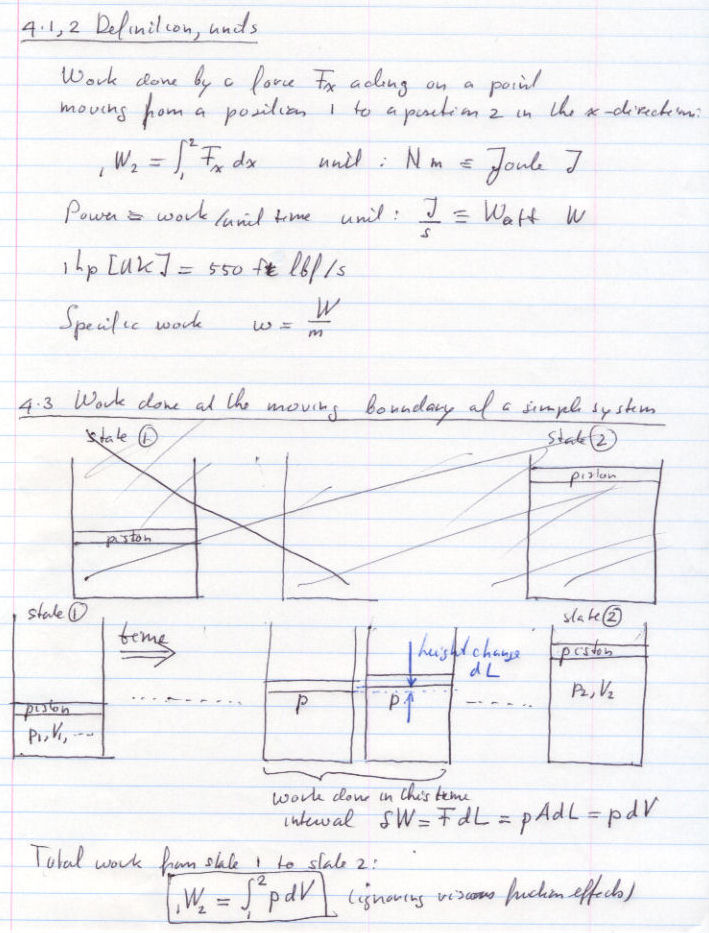 4.1,2 Definition, units
Work done by a force Fx acting on a point
moving from a position 1 to a position 2 in the x-direction:
₁W₂ = ∫₁² Fx dx unit : N m ≡ Joule J
Power ≡ work/unit time unit : J/s ≡ Watt W
1 hp [UK] = 550 ft lbf/s
Specific work w = W/m
4.3 Work done at the moving boundary of a simple system
state ① state ②
piston
piston
state ① state ②
time
height change
dL
piston
piston
p p
P₂, V₂
P₁, V₁, ...
work done in this time
interval δW = F dL = p A dL = p dV
Total work from state 1 to state 2:
₁W₂ = ∫₁² p dV (ignoring viscous friction effects)